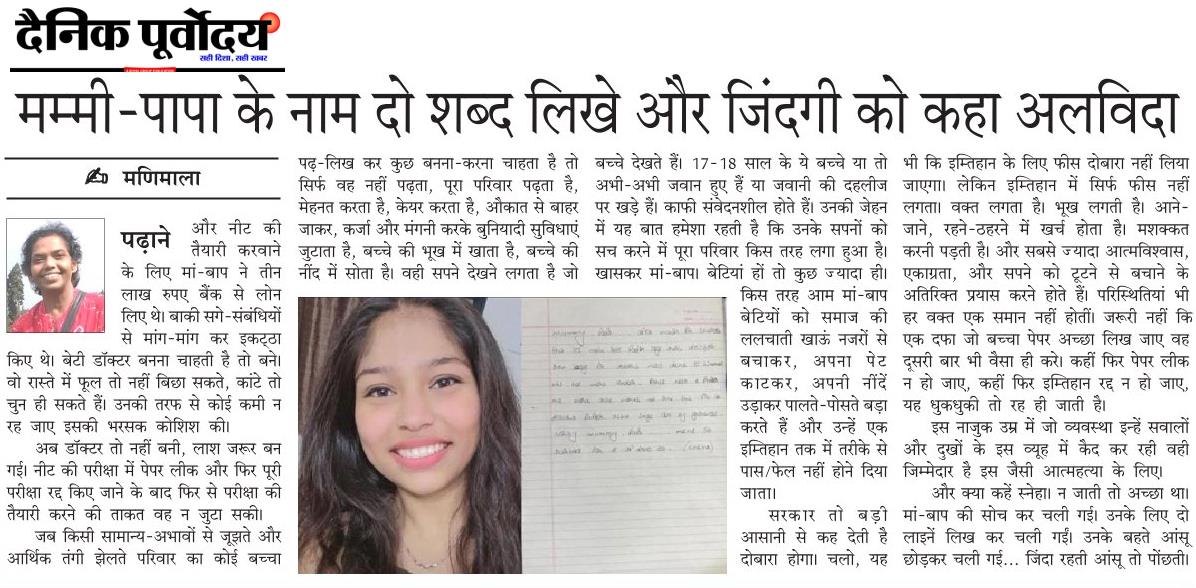 दैनिक पूर्वोदय
सही दिशा, सही खबर
मम्मी-पापा के नाम दो शब्द लिखे और जिंदगी को कहा अलविदा
मणिमाला
पढ़ाने और नीट की
तैयारी करवाने
के लिए मां-बाप ने तीन
लाख रुपए बैंक से लोन
लिए थे। बाकी सगे-संबंधियों
से मांग-मांग कर इकट्ठा
किए थे। बेटी डॉक्टर बनना चाहती है तो बने।
वो रास्ते में फूल तो नहीं बिछा सकते, कांटे तो
चुन ही सकते हैं। उनकी तरफ से कोई कमी न
रह जाए इसकी भरसक कोशिश की।
अब डॉक्टर तो नहीं बनी, लाश जरूर बन
गई। नीट की परीक्षा में पेपर लीक और फिर पूरी
परीक्षा रद्द किए जाने के बाद फिर से परीक्षा की
तैयारी करने की ताकत वह न जुटा सकी।
जब किसी सामान्य-अभावों से जूझते और
आर्थिक तंगी झेलते परिवार का कोई बच्चा
पढ़-लिख कर कुछ बनना-करना चाहता है तो
सिर्फ वह नहीं पढ़ता, पूरा परिवार पढ़ता है,
मेहनत करता है, केयर करता है, औकात से बाहर
जाकर, कर्जा और मंगनी करके बुनियादी सुविधाएं
जुटाता है, बच्चे की भूख में खाता है, बच्चे की
नींद में सोता है। वही सपने देखने लगता है जो
बच्चे देखते हैं। 17-18 साल के ये बच्चे या तो
अभी-अभी जवान हुए हैं या जवानी की दहलीज
पर खड़े हैं। काफी संवेदनशील होते हैं। उनकी जेहन
में यह बात हमेशा रहती है कि उनके सपनों को
सच करने में पूरा परिवार किस तरह लगा हुआ है।
खासकर मां-बाप। बेटियां हों तो कुछ ज्यादा ही।
किस तरह आम मां-बाप
बेटियों को समाज की
ललचाती खाऊं नजरों से
बचाकर, अपना पेट
काटकर, अपनी नींदें
उड़ाकर पालते-पोसते बड़ा
करते हैं और उन्हें एक
इम्तिहान तक में तरीके से
पास/फेल नहीं होने दिया
जाता।
सरकार तो बड़ी
आसानी से कह देती है
दोबारा होगा। चलो, यह
भी कि इम्तिहान के लिए फीस दोबारा नहीं लिया
जाएगा। लेकिन इम्तिहान में सिर्फ फीस नहीं
लगता। वक्त लगता है। भूख लगती है। आने-
जाने, रहने-ठहरने में खर्च होता है। मशक्कत
करनी पड़ती है। और सबसे ज्यादा आत्मविश्वास,
एकाग्रता, और सपने को टूटने से बचाने के
अतिरिक्त प्रयास करने होते हैं। परिस्थितियां भी
हर वक्त एक समान नहीं होतीं। जरूरी नहीं कि
एक दफा जो बच्चा पेपर अच्छा लिख जाए वह
दूसरी बार भी वैसा ही करे। कहीं फिर पेपर लीक
न हो जाए, कहीं फिर इम्तिहान रद्द न हो जाए,
यह धुकधुकी तो रह ही जाती है।
इस नाजुक उम्र में जो व्यवस्था इन्हें सवालों
और दुखों के इस व्यूह में कैद कर रही वही
जिम्मेदार है इस जैसी आत्महत्या के लिए।
और क्या कहें स्नेहा। न जाती तो अच्छा था।
मां-बाप की सोच कर चली गई। उनके लिए दो
लाइनें लिख कर चली गईं। उनके बहते आंसू
छोड़कर चली गई... जिंदा रहती आंसू तो पोंछती।